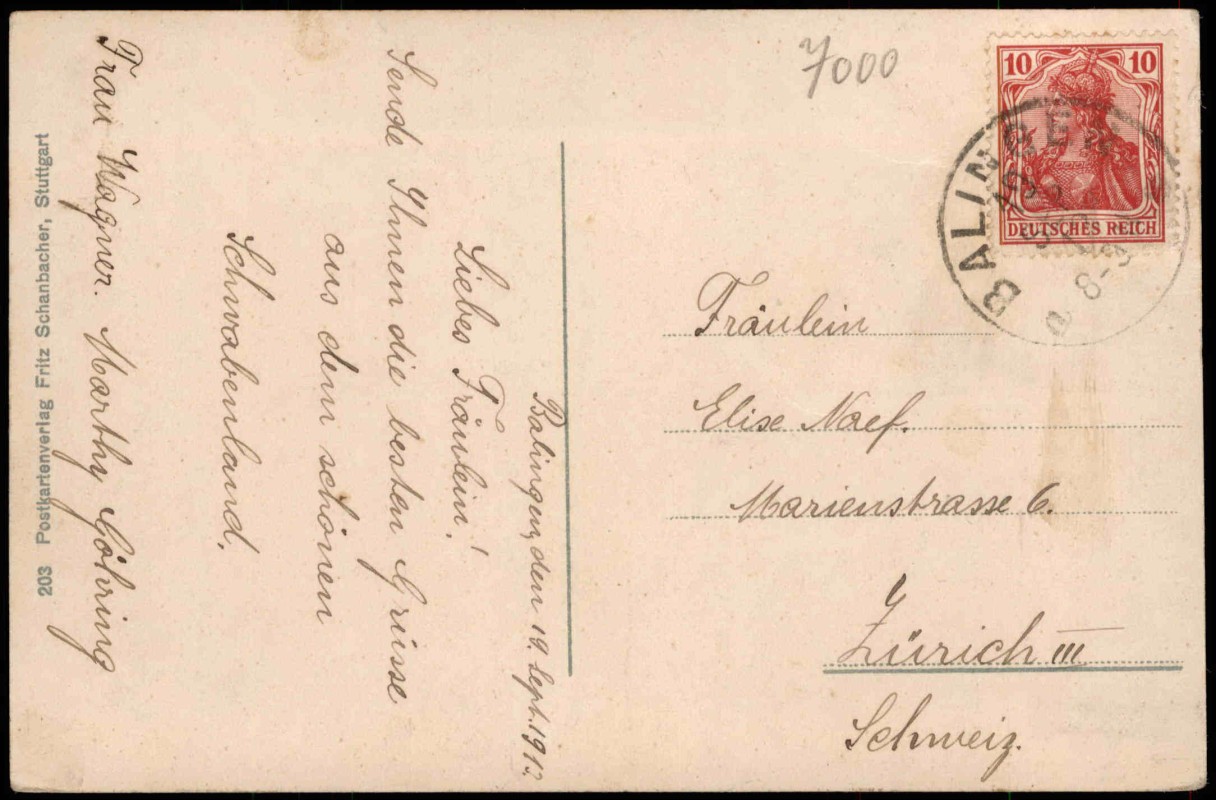 7000
10 10
DEUTSCHES REICH
BALINGEN
8-9
Balingen, den 19. Sept. 1912
Liebes Fräulein!
Sende Ihnen die besten Grüsse
aus dem schönen
Schwabenland.
Frau Wagner. Marthy Göhring
203 Postkartenverlag Fritz Schanbacher, Stuttgart
Fräulein
Elise Naef.
Marienstrasse 6.
Zürich III
Schweiz.